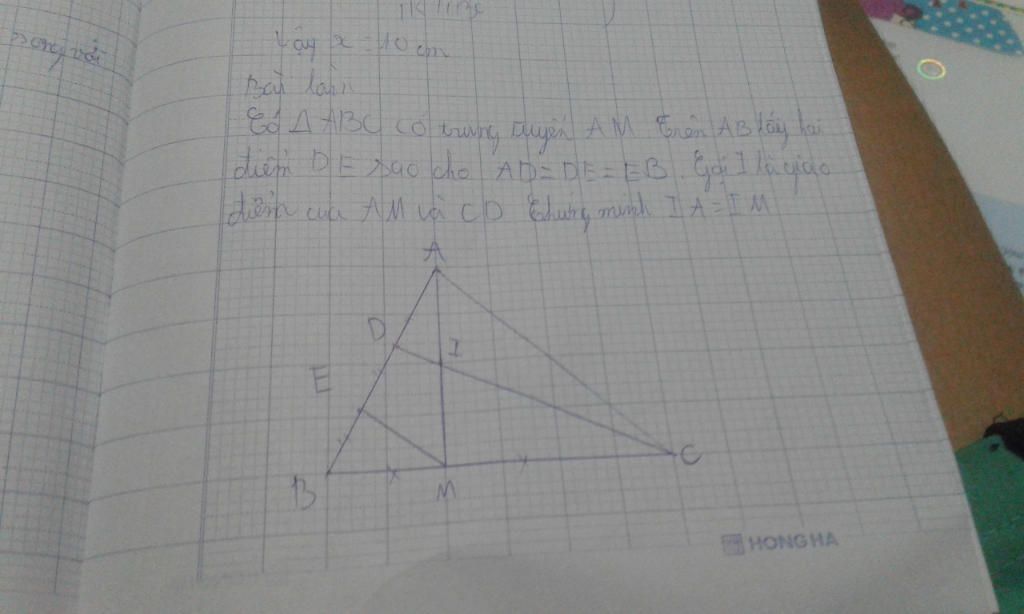 song với
Vậy x = 10 cm
Bài làm
Có Δ ABC có trung tuyến AM Trên AB lấy hai
điểm D E sao cho AD = DE = EB. Gọi I là giao
điểm của AM và CD Chứng minh IA = IM
A
D
I
E
B
M
C
HONG HA